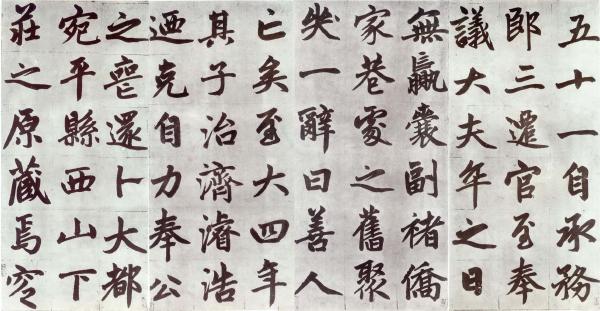 五十一自承務
郎三遷官至奉
議大夫卒之日
無贏囊副褚僑
家巷處之舊聚
哭一辭曰善人
亡矣至大四年
其子治濟濬浩
迺克自力奉公
之喪還卜大都
宛平縣西山下
莊之原藏焉窆